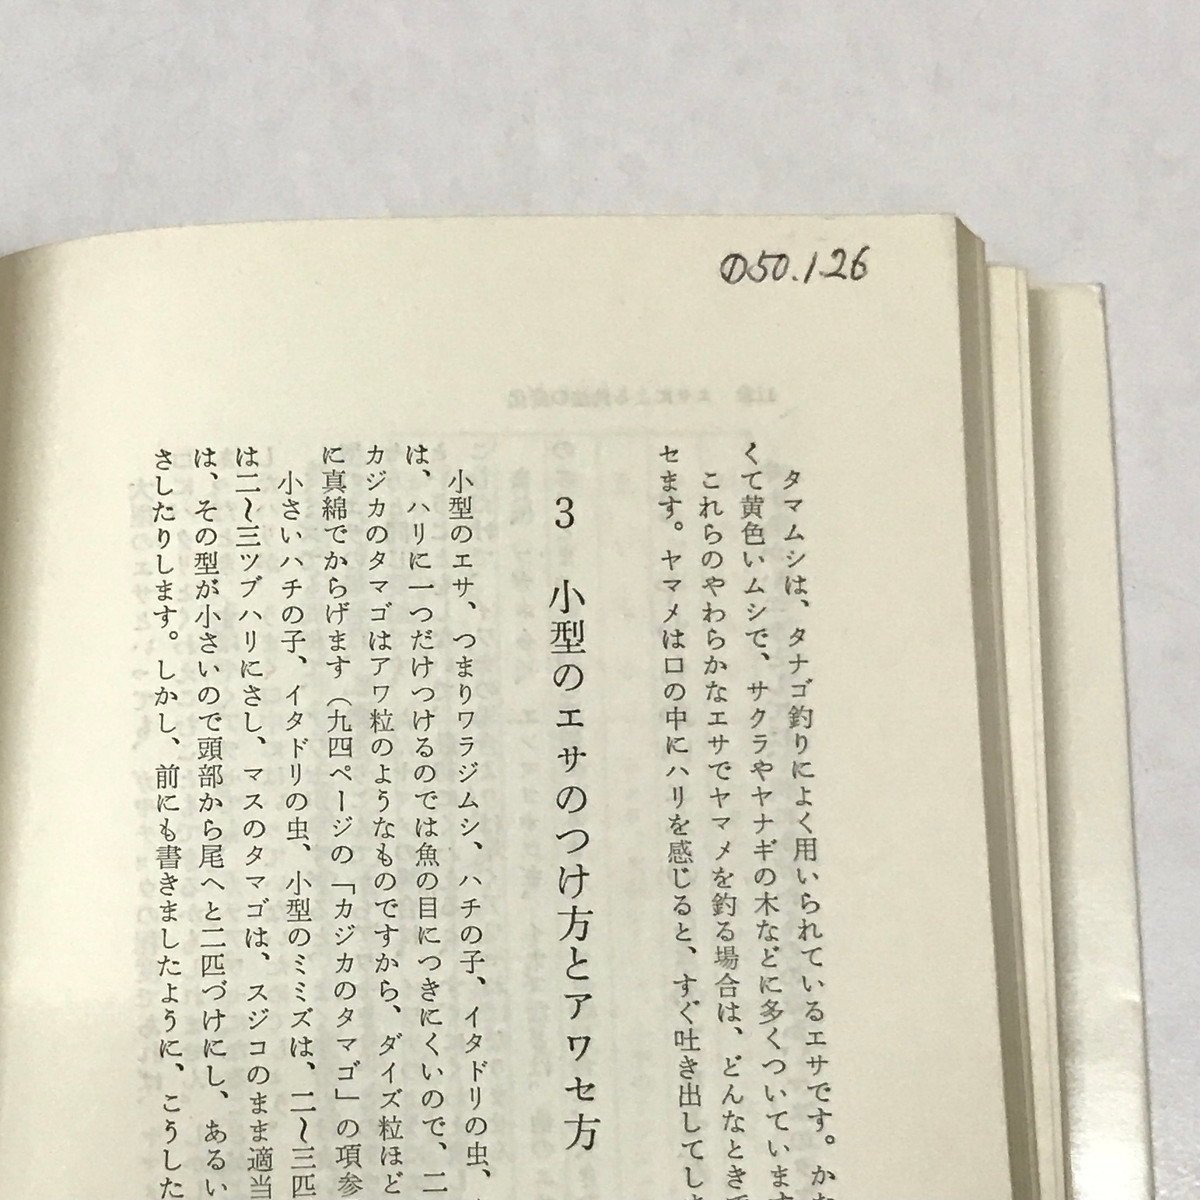 の50.126
タマムシは、タナゴ釣りによく用いられているエサです。か
くて黄色いムシで、サクラやヤナギの木などに多くついています
これらのやわらかなエサでヤマメを釣る場合は、どんなときで
セます。ヤマメは口の中にハリを感じると、すぐ吐き出してしま
3 小型のエサのつけ方とアワセ方
小型のエサ、つまりワラジムシ、ハチの子、イタドリの虫、
は、ハリに一つだけつけるのでは魚の目につきにくいので、二
カジカのタマゴはアワ粒のようなものですから、ダイズ粒ほど
に真綿でからげます（九四ページの「カジカのタマゴ」の項参
小さいハチの子、イタドリの虫、小型のミミズは、二〜三匹
は二〜三ツブハリにさし、マスのタマゴは、スジコのまま適当
は、その型が小さいので頭部から尾へと二匹づけにし、あるい
さしたりします。しかし、前にも書きましたように、こうした